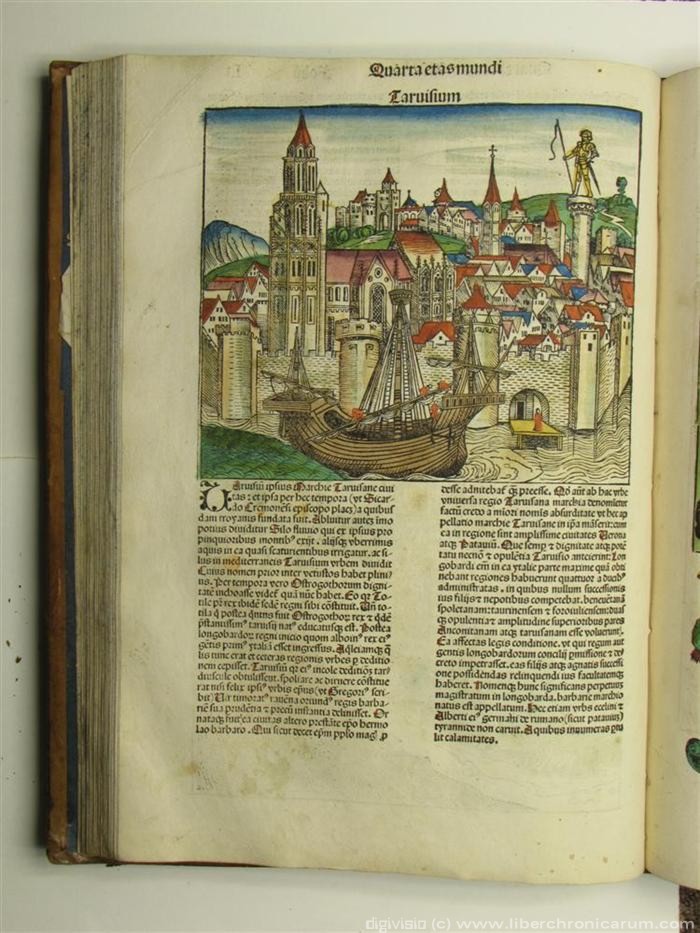 Quarta etas mundi
Tarvisium
Taruisiū ipsius Marchie Taruisane ciui
tas: et ipsa per hec tempora (vt Sicar
do Cremonēsi episcopo placz) a quibus
dam troyanis fundata fuit. Abluitur autez imo
potius diuiditur Silo fluuio qui ex ipsius pro
pinquioribus montibꝰ exijt. alijsqz vberrimis
aquis in ea quasi scaturientibus irrigatur. ac si-
lus in mediterraneis Taruisium vrbem diuidit
Cuius nomen prior inter vetustos habet plini
us. Per tempora vero Ostrogothorum digni
tatē inchoasse videt quā nūc habet. Eo qꝛ To
tile pr rex ibidē sedē regni sibi cōstituit. Un to
tila postea qntus fuit Ostrogothoꝝ rex
pstanissimꝰ tarusij natꝰ educatusqz est. Postea
longobardoꝝ regni inicio quom alboinꝰ rex eiꝰ
gētis primꝰ ytaliā esset ingressus.
tis tunc erat et ceteras regionis vrbes deditio
nem cepisset. Taruisini incole deditiōz tar
diuscule obtulissent. spoliare ac diruere cōstitue
rat nisi felix ipsiꝰ vrbis epūs (vt Gregoriꝰ scri
bit)
sua prudētia precū instantia delinisset. Or
nataqz fuit ea ciuitas altero prestāte epo hermo
lao barbaro. Qui sicut decet epm pplo magꝭ
desse admitebat qz preesse. Qd aūt ab hac vrbe
vniuersa regio Taruisina marchia denomiet
factū credo a miori nomis absurditate vt hec ap
pellatio marchie Taruisine in ipa māserit: cum
ea in regione sint amplissime ciuitates Uerona
atqz Patauiū. Que semp dignitate atqz potē
tatu necnō opulētia Taruisio anteierint: Lon
gobardi em in ea ytalie parte maxime quā obti
nebant regiones habuerunt quatuor a ducibꝰ
administratas. in quibus nullum successionis
ius filijs nepotibus competebat. beneuētanā
spoletanam: taurinensem forouiliensem: duas
opulentia amplitudine superioribus pares
Anconitanam atqz taruisanam esse voluerunt.
Ea affectas legis conditione. vt qui regum aut
gentis longobardorum concilij pmissione de
creto impetrasset. eas filijs atqz agnatis successi
one possidendas relinquendi ius facultatemqz
haberet. Nomenqz hunc significans perpetuum
magistratum in longobarda. barbarie marchio
natus est appellatum. Hec etiam vrbs ecelini
Alberti eiꝰ germani de rumano (sicut patauiuz)
tyrannide non caruit. A quibus innumeras ptu
lit calamitates.
digivisio (c) www.liberchronicarum.com